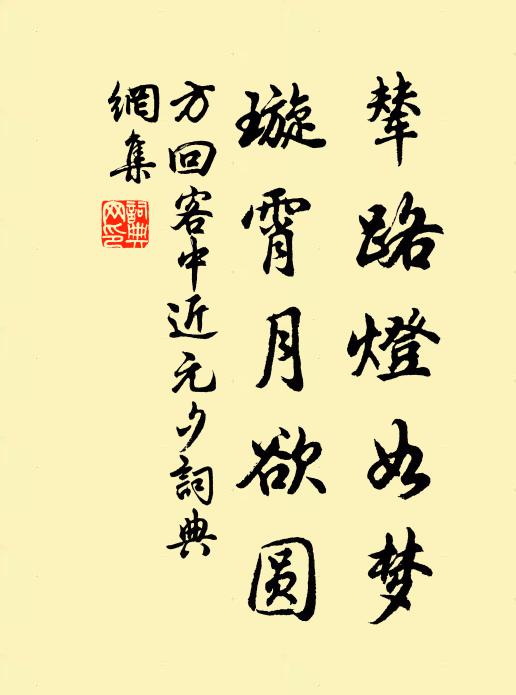 輦路燈如梦
璇霄月欲圆
方回客中近元夕詞典
網集
詞典网印